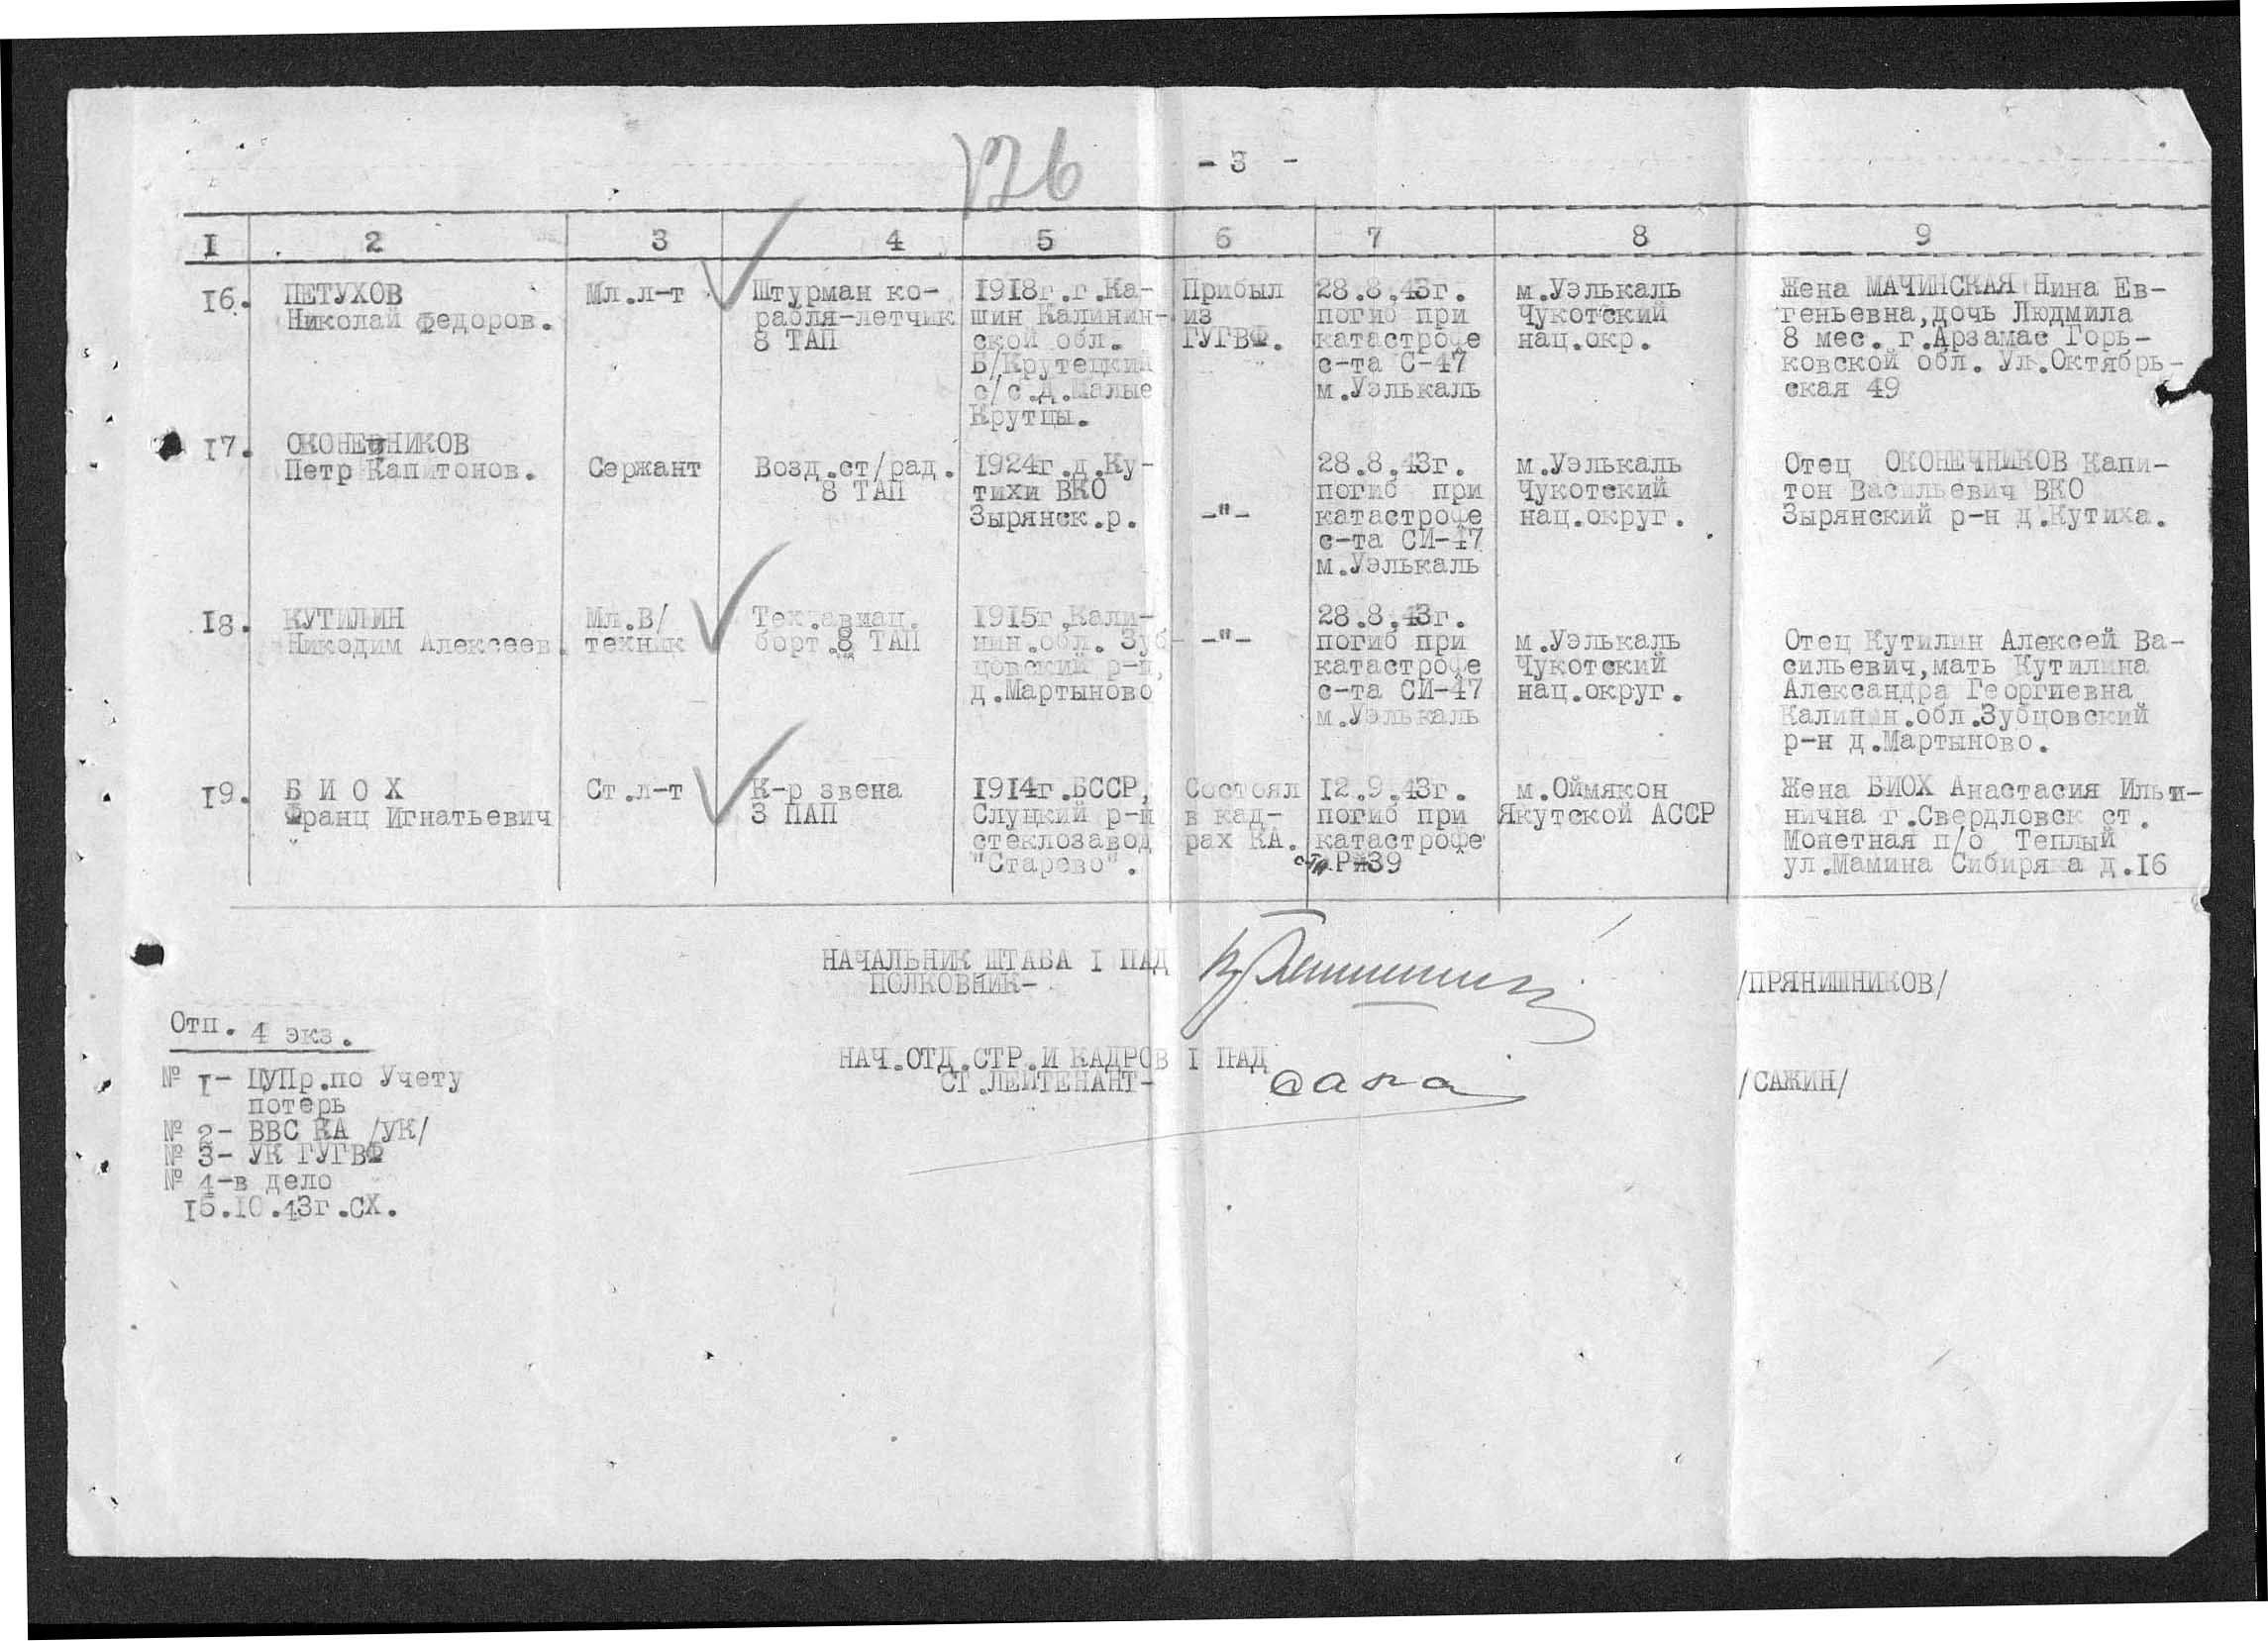 126
- 3 -
I 2 3 4 5 6 7 8 9
16. ПЕТУХОВ
Николай Федоров.
Мл.л-т
Штурман ко-
рабля-летчик
8 ТАП
1918г.г.Ка-
шин Калинин-
ской обл.
Б/Крутецкий
с/с.д.Малые
Крутцы.
Прибыл
из
ГУГВФ.
28.8.43г.
погиб при
катастрофе
с-та С-47
м.Уэлькаль
м.Уэлькаль
Чукотский
нац.окр.
Жена МАЧИНСКАЯ Нина Ев-
геньевна,дочь Людмила
8 мес. г.Арзамас Горь-
ковской обл. Ул.Октябрь-
ская 49
17. ОКОНЕЧНИКОВ
Петр Капитонов.
Сержант
Возд.ст/рад.
8 ТАП
1924г.д.Ку-
тихи ВКО
Зырянск.р.
-"-
28.8.43г.
погиб при
катастрофе
с-та СИ-47
м.Уэлькаль
м.Уэлькаль
Чукотский
нац.округ.
Отец ОКОНЕЧНИКОВ Капи-
тон Васильевич ВКО
Зырянский р-н д.Кутиха.
18. КУТИЛИН
Никодим Алексеев.
Мл.В/
техник
Тех.авиац.
борт.8 ТАП
1915г.Кали-
нин.обл. Зуб-
цовский р-н,
д.Мартыново
-"-
28.8.43г.
погиб при
катастрофе
с-та СИ-47
м.Уэлькаль
м.Уэлькаль
Чукотский
нац.округ.
Отец Кутилин Алексей Ва-
сильевич,мать Кутилина
Александра Георгиевна
Калинин.обл.Зубцовский
р-н д.Мартыново.
19. Б И О Х
Франц Игнатьевич
Ст.л-т
К-р звена
3 ПАП
1914г.БССР,
Слуцкий р-н
стеклозавод
"Старево".
Состоял
в кад-
рах КА.
12.9.43г.
погиб при
катастрофе
с-та Р-39
м.Оймякон
Якутской АССР
Жена БИОХ Анастасия Ильи-
нична г.Свердловск ст.
Монетная п/о Теплый
ул.Мамина Сибиряка д.16
НАЧАЛЬНИК ШТАБА I ПАД
ПОЛКОВНИК-
/ПРЯНИШНИКОВ/
НАЧ.ОТД.СТР.И КАДРОВ I ПАД
СТ.ЛЕЙТЕНАНТ-
/САЖИН/
Отп. 4 экз.
№ I- ЦУПр.по Учету
потерь
№ 2- ВВС КА /УК/
№ 3- УК ГУГВФ
№ 4-в дело
15.10.43г.СХ.